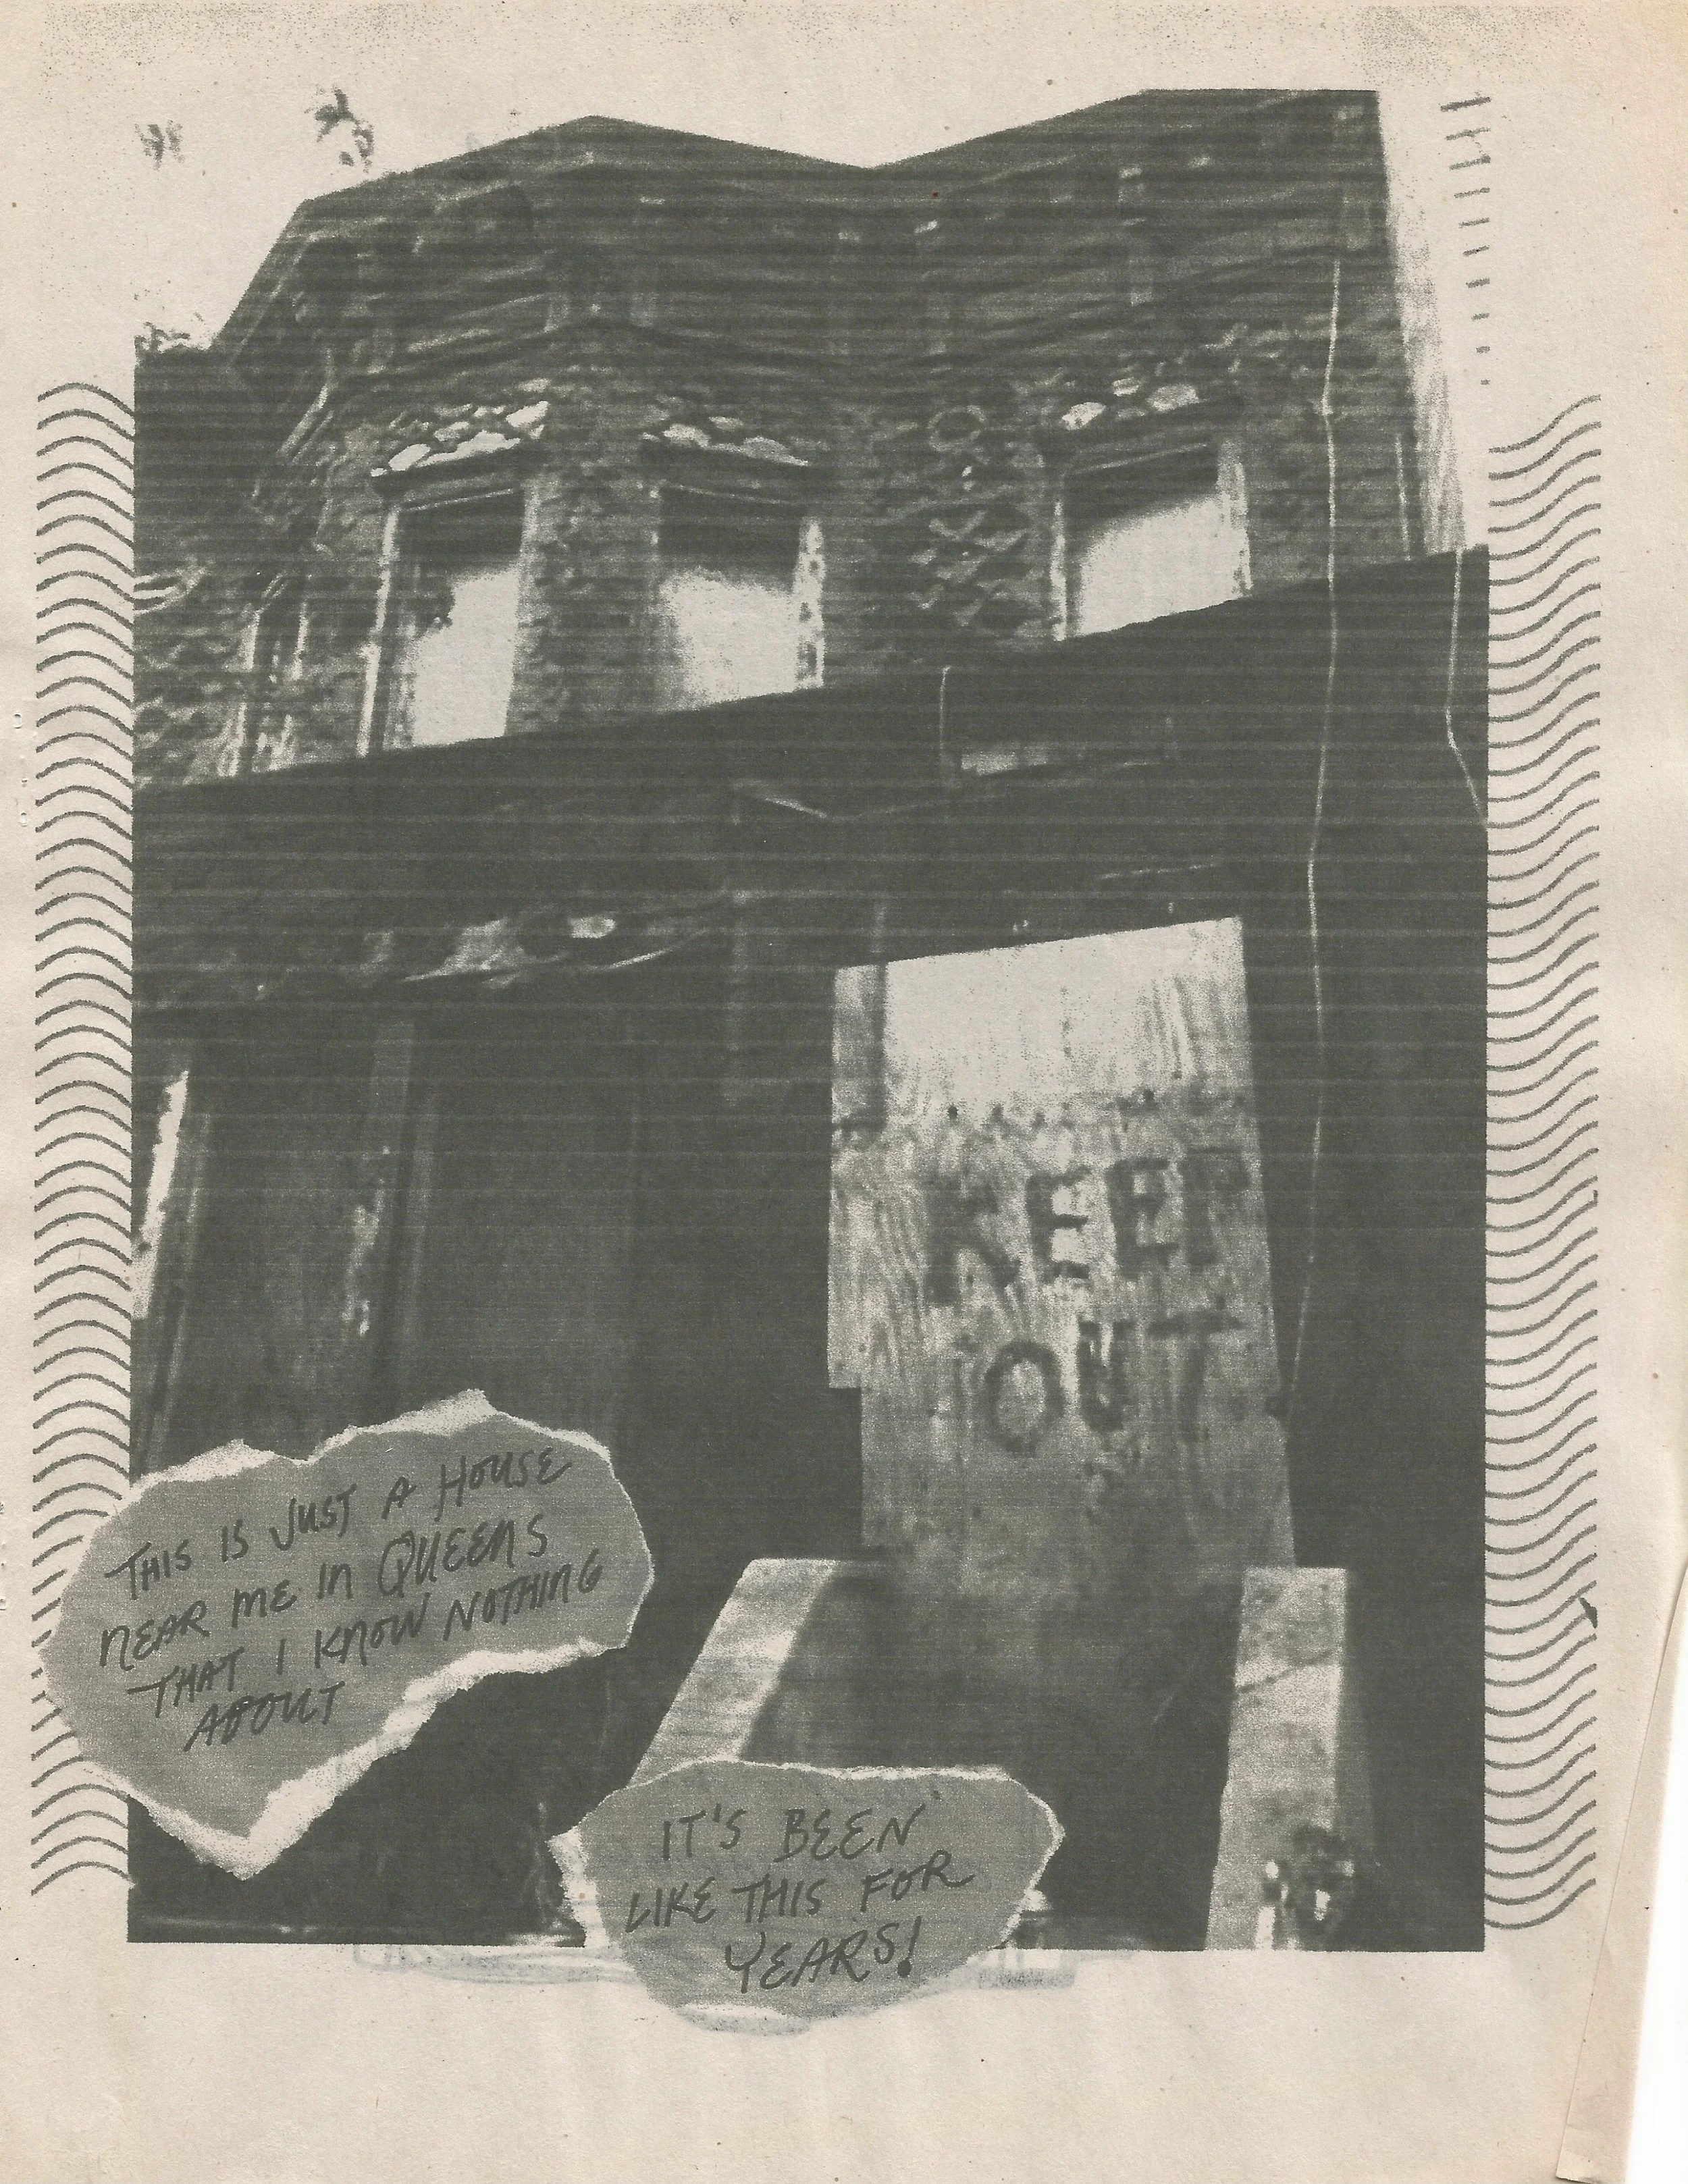 KEEP
OUT
THIS IS JUST A HOUSE
NEAR ME IN QUEENS
THAT I KNOW NOTHING
ABOUT
IT'S BEEN
LIKE THIS FOR
YEARS!